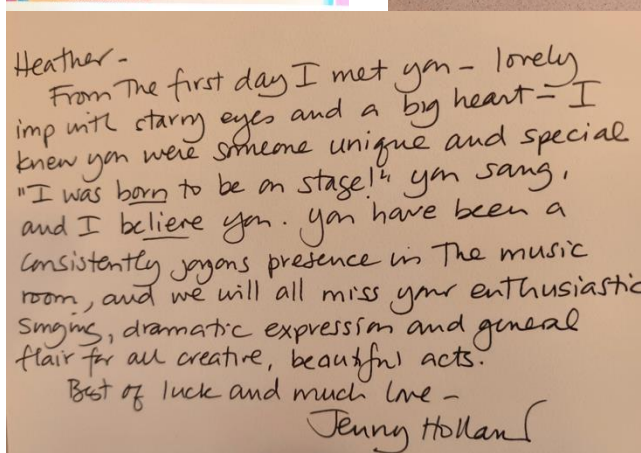 Heather -
From The first day I met you - lovely
imp with starry eyes and a big heart - I
knew you were someone unique and special
"I was born to be on stage!" you sang,
and I believe you. You have been a
consistently joyous presence in The music
room, and we will all miss your enthusiastic
singing, dramatic expression and general
flair for all creative, beautiful acts.
Best of luck and much love -
Jenny Holland